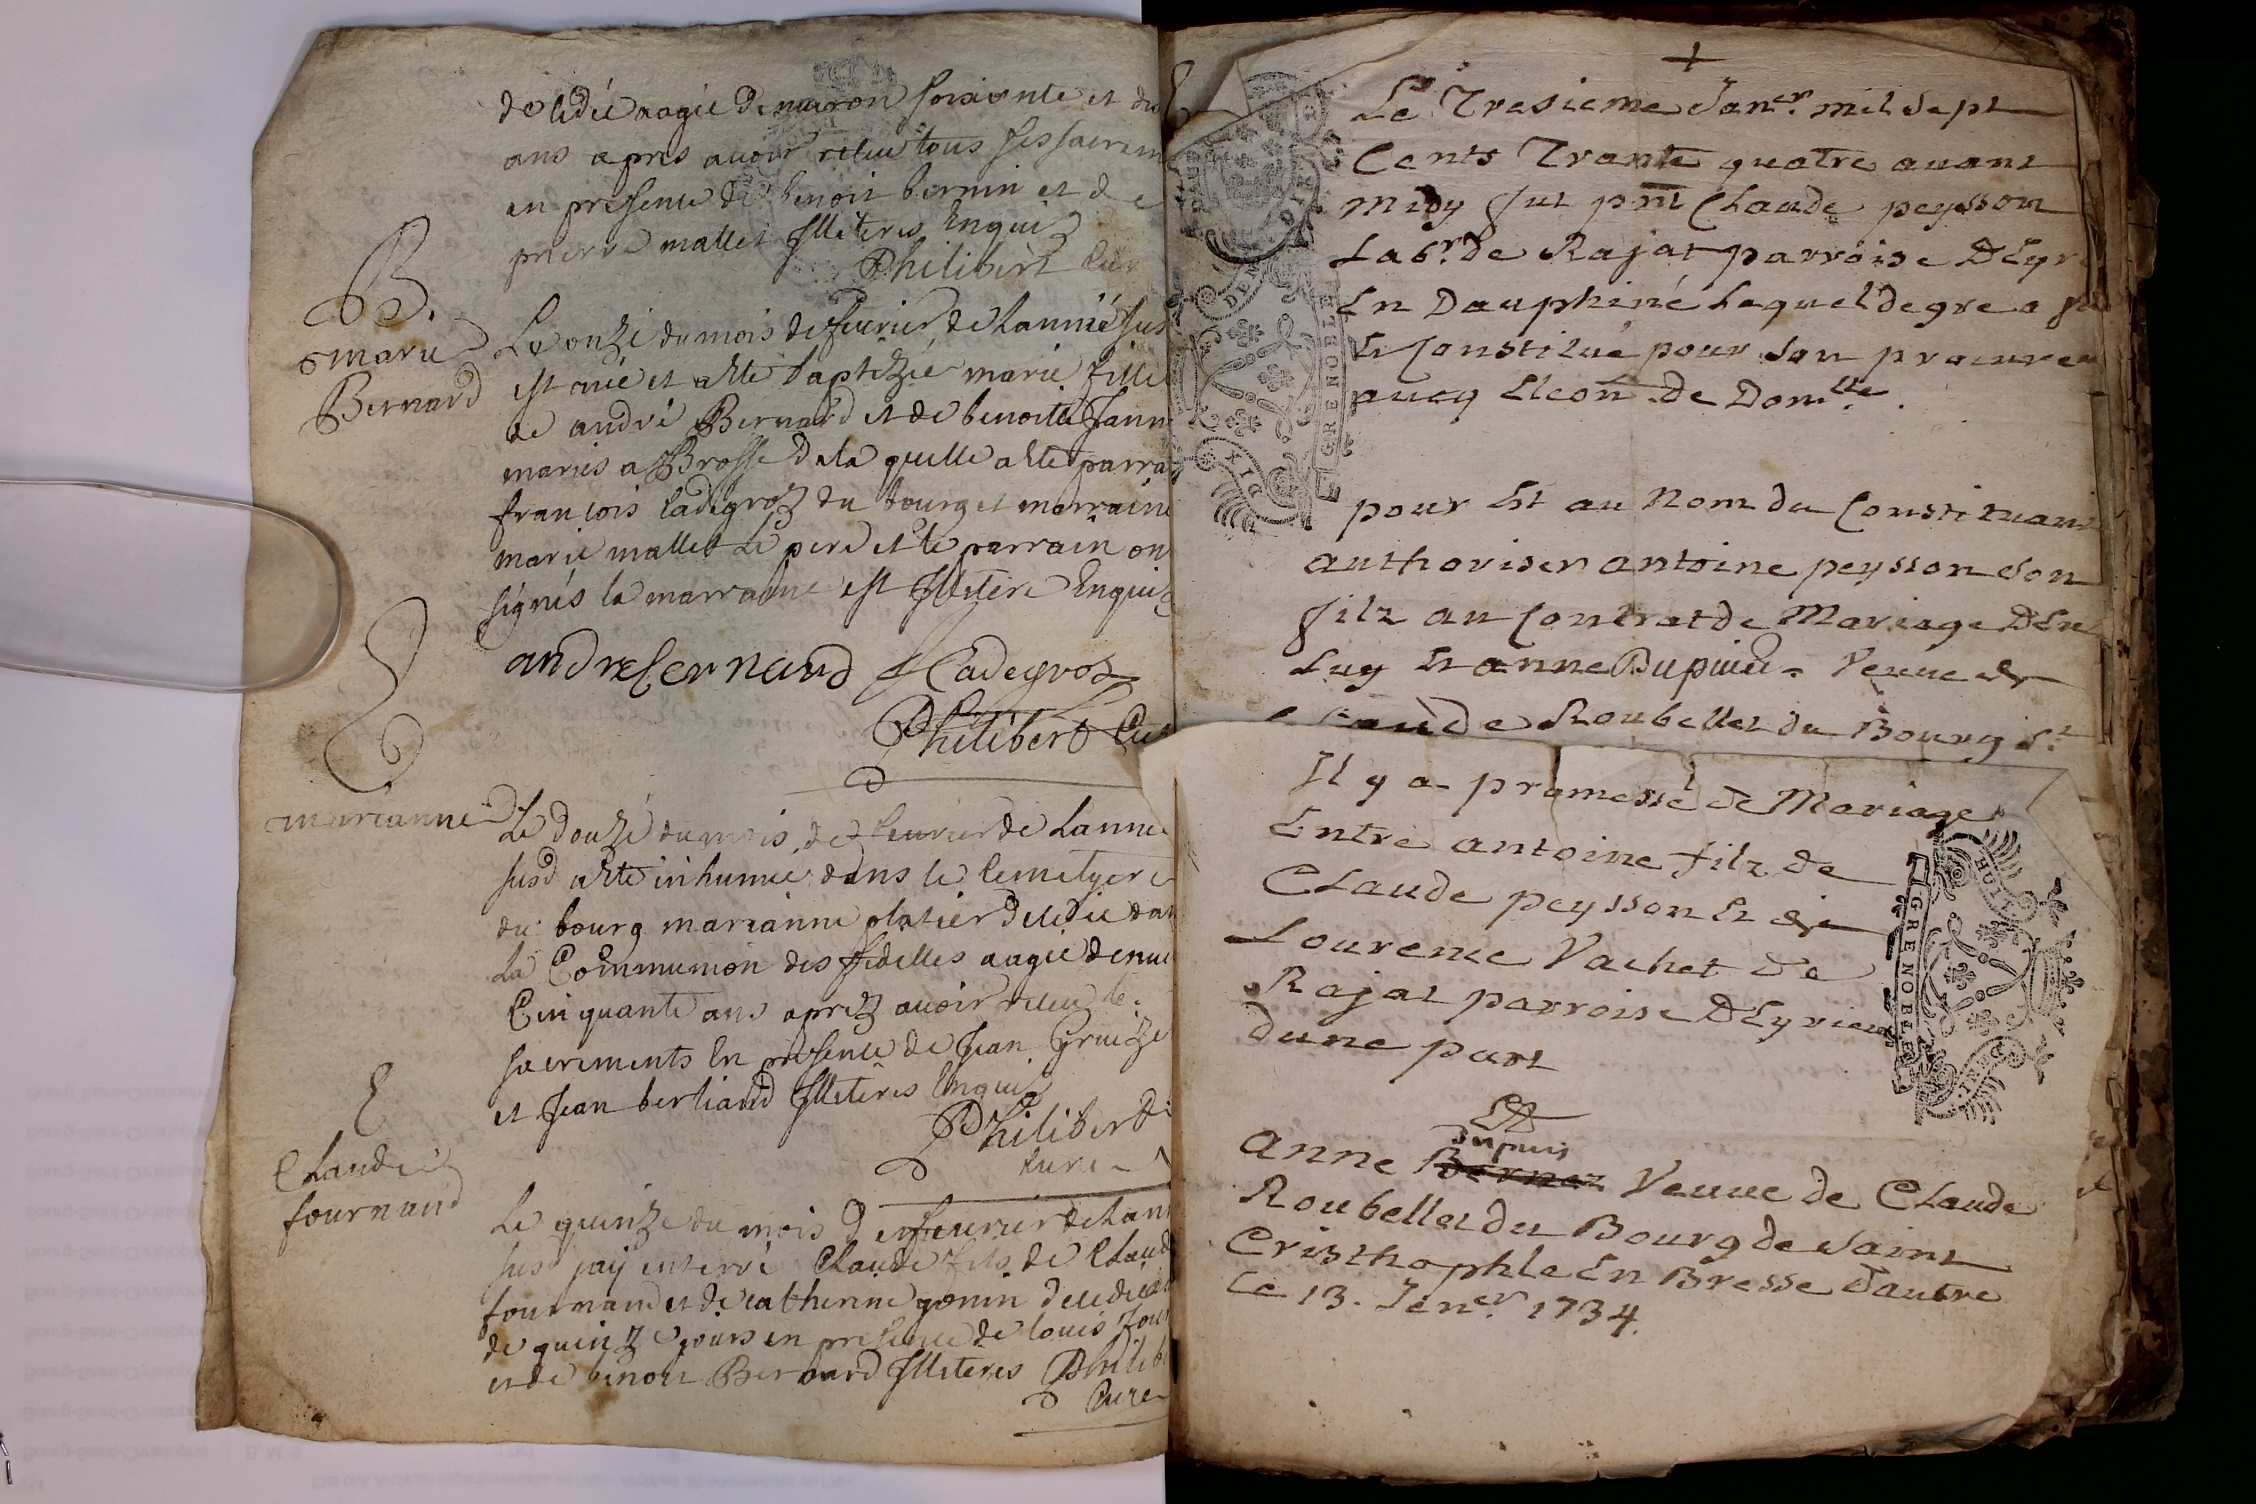 decedée aagée denviron soixante et dix
ans apres avoir recue tous ses sacrem
en presence de benoit bernin et de
pierre mallet Illiteres Enquis
Philibert Cur
B.
marie
Bernard
Le onze du mois de feurier de Lannée sus
est née et a été baptizée marie fille
de andré Bernard et de benoitte Jann
mariés a Brosse de la quelle a été parra
francois Cadegroz du bourg et marraine
marie mallet Le pere et le parrain on
signés la marraine est Illitere Enquis
andre bernard f Cadegroz
Philibert Cur
marianne
Le douze du mois de feurier de Lanne
susd a été inhumée dans le Cemetyere
du bourg marianne platier decedée dan
La Communion des fidelles aagée denui
Cinquante ans aprez avoir recue le
sacrements En presence de Jean Gruizze
et Jean bertiand Illiteres Enquis
Philibert
Cure
Claude
fournand
Le quinze du mois de feurier de Lan
susd jay enterré Claude fils de Claud
fournand et de catherine gonin decedé
de quinze jours en presence de louis four
et de benoit Bernard Illiteres Philib
Cure
Le Tresieme Janer. mil sept
Cents Trante quatre auant
midy fut pnt Claude peysson
Labr. de Rajat parroise DEyr
En Dauphiné Lequel de gre a f
Et Constitué pour son procureu
aucq Elcon de Domlle.
pour Et au Nom du Constituant
authoriser antoine peysson son
filz au Contrat de Mariage DEn
Luy Et anne Dupuis Veuue de
Claude Roubellet du Bourg St
Il y a promesse de Mariage
Entre antoine filz de
Claude peysson Et de
Lourence Vachet de
Rajat parroise DEyrieu
dune part
Et
dupuis
anne Veuue de Claude
Roubellet du Bourg de Saint
Cristhophle En Bresse dautre
Le 13. Jener. 1734.
GRENOBLE
DIX
GRENOBLE
HUIT
DENI